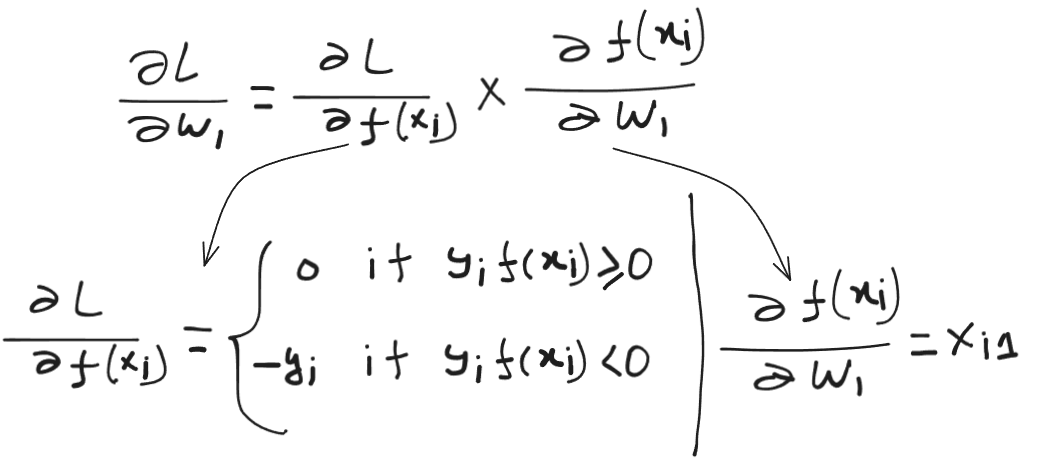 ∂L/∂W₁ = ∂L/∂f(xᵢ) × ∂f(xᵢ)/∂W₁
∂L/∂f(xᵢ) = { 0 if yᵢ f(xᵢ) ⩾ 0
-yᵢ if yᵢ f(xᵢ) < 0
∂f(xᵢ)/∂W₁ = xᵢ₁